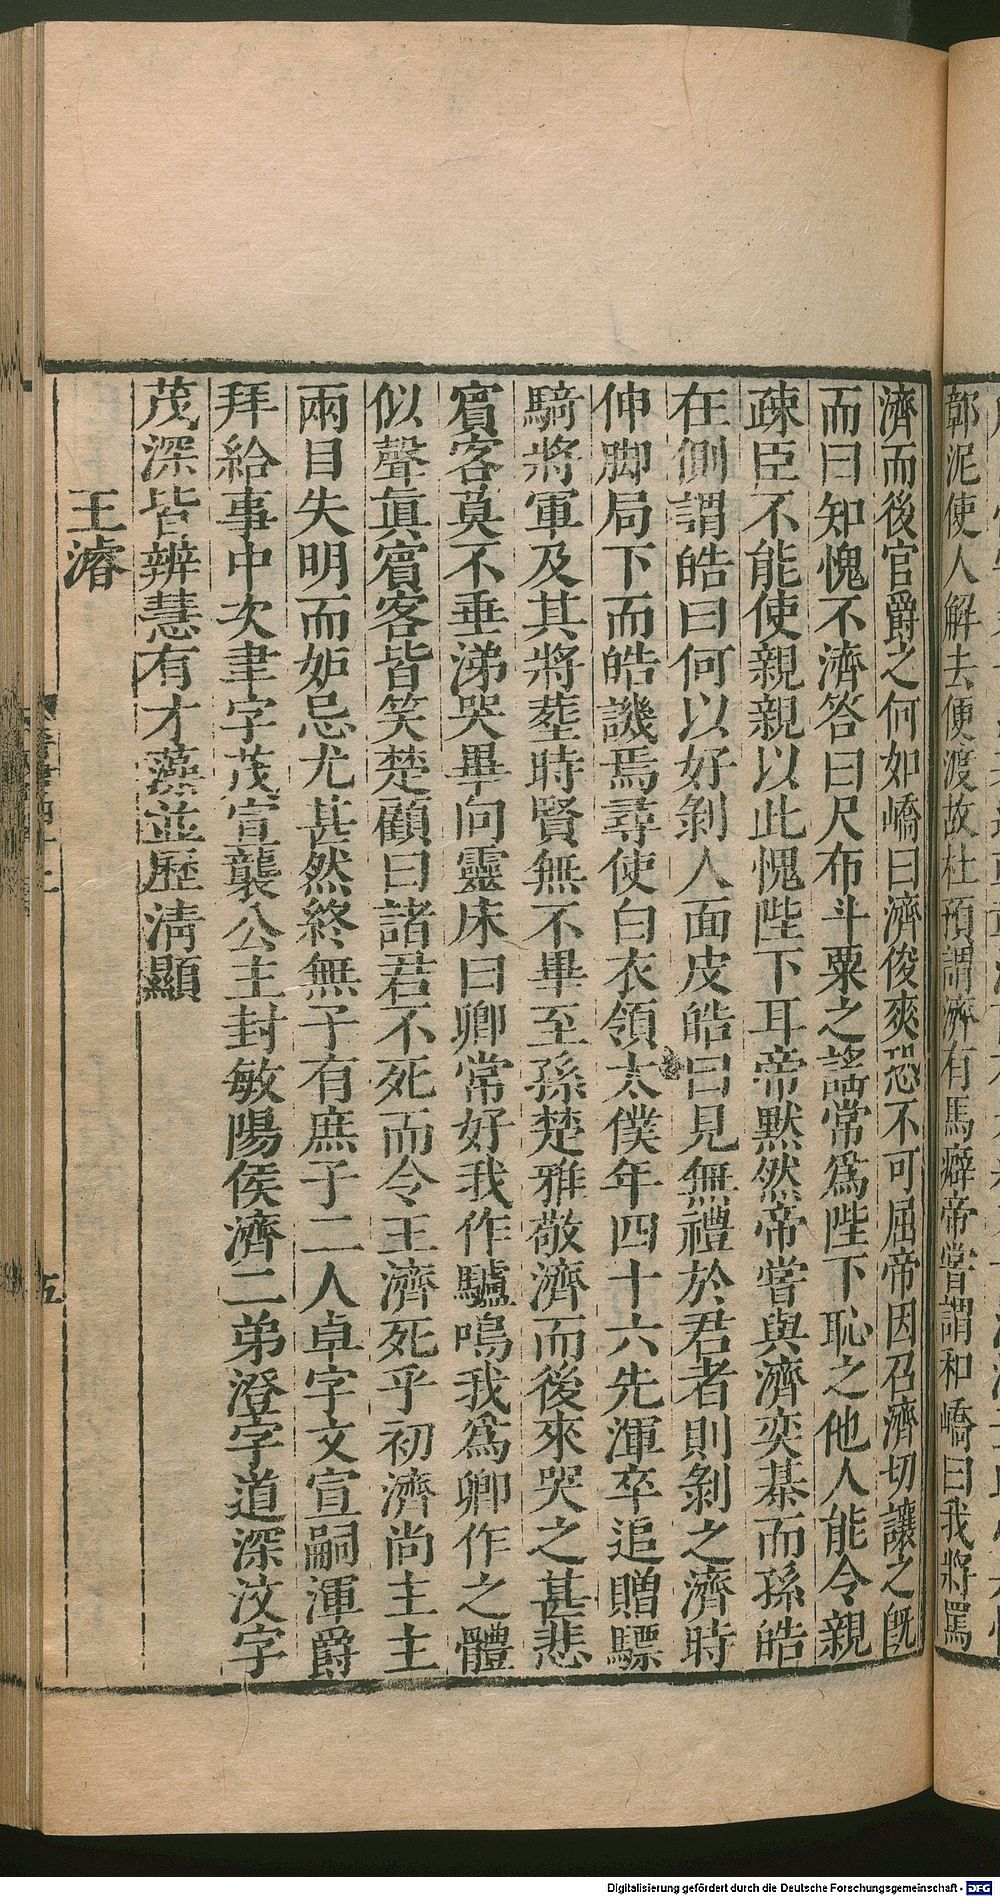 鄣泥使人解去便渡故杜預謂濟有馬癖帝嘗謂和嶠曰我將罵
濟而後官爵之何如嶠曰濟俊爽恐不可屈帝因召濟切讓之旣
而曰知愧不濟答曰尺布斗粟之謠常爲陛下恥之他人能令親
疎臣不能使親親以此愧陛下耳帝黙然帝嘗與濟奕棊而孫皓
在側謂皓曰何以好剝人面皮皓曰見無禮於君者則剝之濟時
伸脚局下而皓譏焉尋使白衣領太僕年四十六先渾卒追贈驃
騎將軍及其將塟時賢無不畢至孫楚雅敬濟而後來哭之甚悲
賓客莫不垂涕哭畢向靈床曰卿常好我作驢鳴我爲卿作之體
似聲眞賓客皆笑楚顧曰諸君不死而令王濟死乎初濟尚主主
兩目失明而妬忌尤甚然終無子有庶子二人卓字文宣嗣渾爵
拜給事中次聿字茂宣襲公主封敏陽侯濟二弟澄字道深汶字
茂深皆辨慧有才藻並歷淸顯
王濬
五
Digitalisierung gefördert durch die Deutsche Forschungsgemeinschaft - DFG